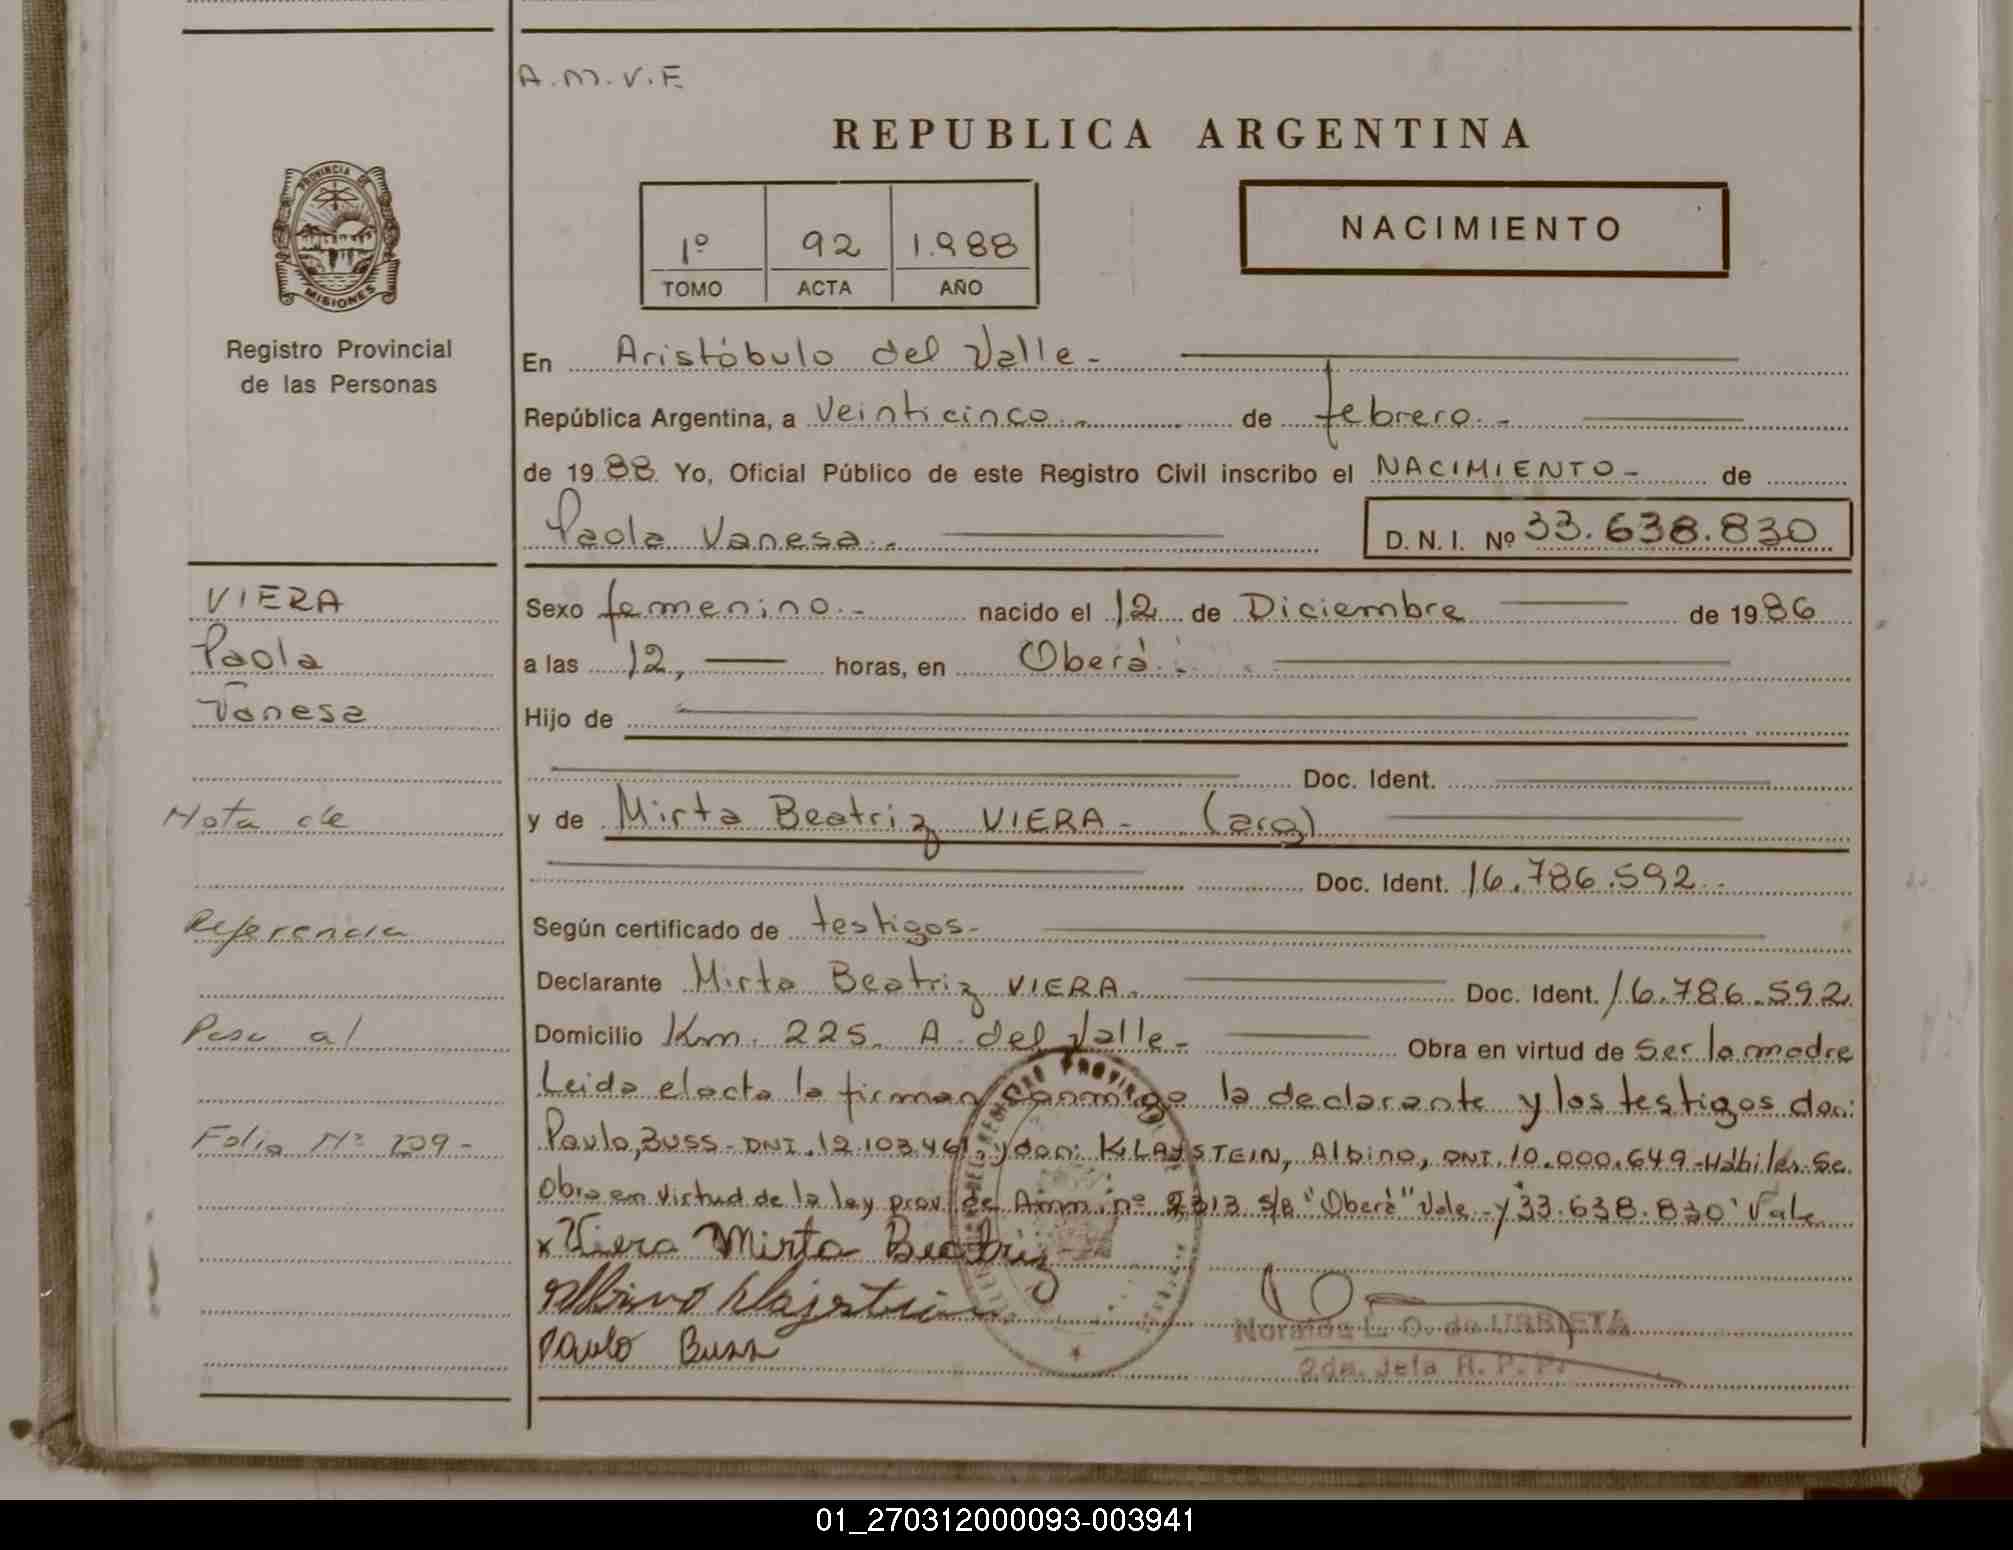 A.M.V.F
REPUBLICA ARGENTINA
NACIMIENTO
1º 92 1.988
TOMO ACTA AÑO
PROVINCIA DE
MISIONES
Registro Provincial
de las Personas
En Aristóbulo del Valle.-
República Argentina, a Veinticinco.- de febrero.-
de 1988. Yo, Oficial Público de este Registro Civil inscribo el NACIMIENTO- de
Paola Vanesa.- D. N. I. Nº 33.638.830
VIERA
Paola
Vanesa
Nota de
Referencia
Pasa al
Folio Nº 209-
Sexo femenino.- nacido el 12 de Diciembre de 1986
a las 12, horas, en Oberá.
Hijo de
Doc. Ident.
y de Mirta Beatriz VIERA- (arg)
Doc. Ident. 16.786.592.-
Según certificado de testigos.-
Declarante Mirta Beatriz VIERA.- Doc. Ident. 16.786.592.
Domicilio Km. 225. A. del Valle- Obra en virtud de Ser la madre
Leida el acta la firman conmigo la declarante y los testigos don:
Paulo, BUSS- DNI. 12.103.461. y don: KLAJSTEIN, Albino, DNI. 10.000.649-Hábiles. Se
Obra en virtud de la ley prov. de Amn. nº 2313 S/R "Oberá" Vale-y "33.638.830" Vale
x Viera Mirta Beatriz
Albino Klajstein
Paulo Buss
L. O. de URBIETA
2da. Jefa R. P. P.
01_270312000093-003941